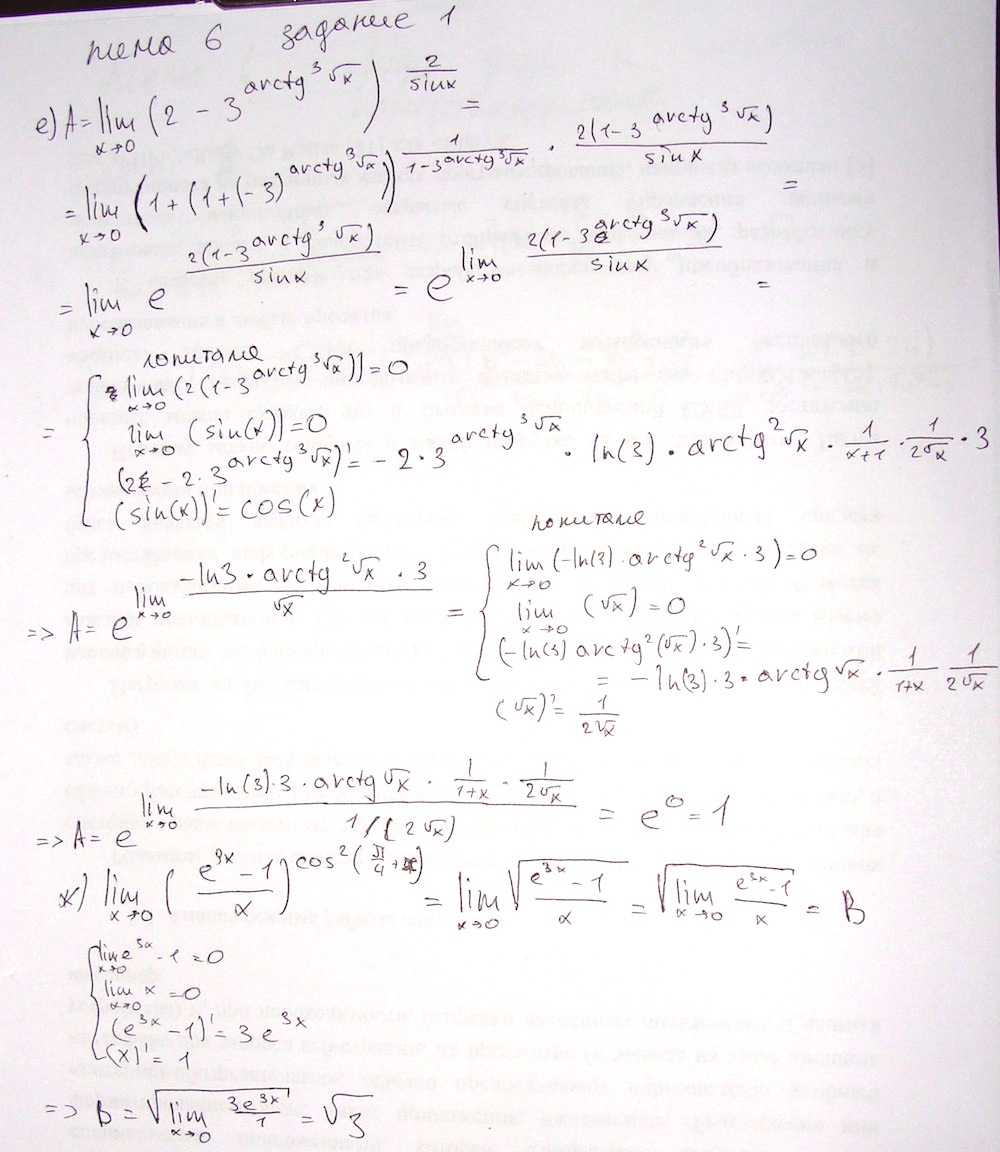 тема 6 задание 1
е) A = lim_{x→0} (2 − 3^{arctg³√x})^{2/sinx} =
= lim_{x→0} (1 + (1 + (−3)^{arctg³√x}))^{1/(1−3^{arctg³√x}) · 2(1−3^{arctg³√x})/sinx} =
= lim_{x→0} e^{2(1−3^{arctg³√x})/sinx} = e^{lim_{x→0} 2(1−3^{arctg³√x})/sinx} =
лопиталь
= { lim_{x→0} (2(1−3^{arctg³√x})) = 0
lim_{x→0} (sin(x)) = 0
(2 − 2·3^{arctg³√x})' = −2·3^{arctg³√x} · ln(3) · arctg²√x · 1/(x+1) · 1/(2√x) · 3
(sin(x))' = cos(x)
=> A = e^{lim_{x→0} (−ln3 · arctg²√x · 3)/√x} =
лопиталь
{ lim_{x→0} (−ln(3) · arctg²√x · 3) = 0
lim_{x→0} (√x) = 0
(−ln(3) arctg²(√x) · 3)' =
= −ln(3) · 3 · arctg√x · 1/(1+x) · 1/(2√x)
(√x)' = 1/(2√x)
=> A = e^{lim_{x→0} (−ln(3)·3 · arctg√x · 1/(1+x) · 1/(2√x))/(1/(2√x))} = e^0 = 1
ж) lim_{x→0} ((e^{3x} − 1)/x)^{cos²(π/4 + x)} = lim_{x→0} √((e^{3x} − 1)/x) = √(lim_{x→0} (e^{3x} − 1)/x) = B
{ lim_{x→0} e^{3x} − 1 = 0
lim_{x→0} x = 0
(e^{3x} − 1)' = 3e^{3x}
(x)' = 1
=> B = √(lim_{x→0} 3e^{3x}/1) = √3